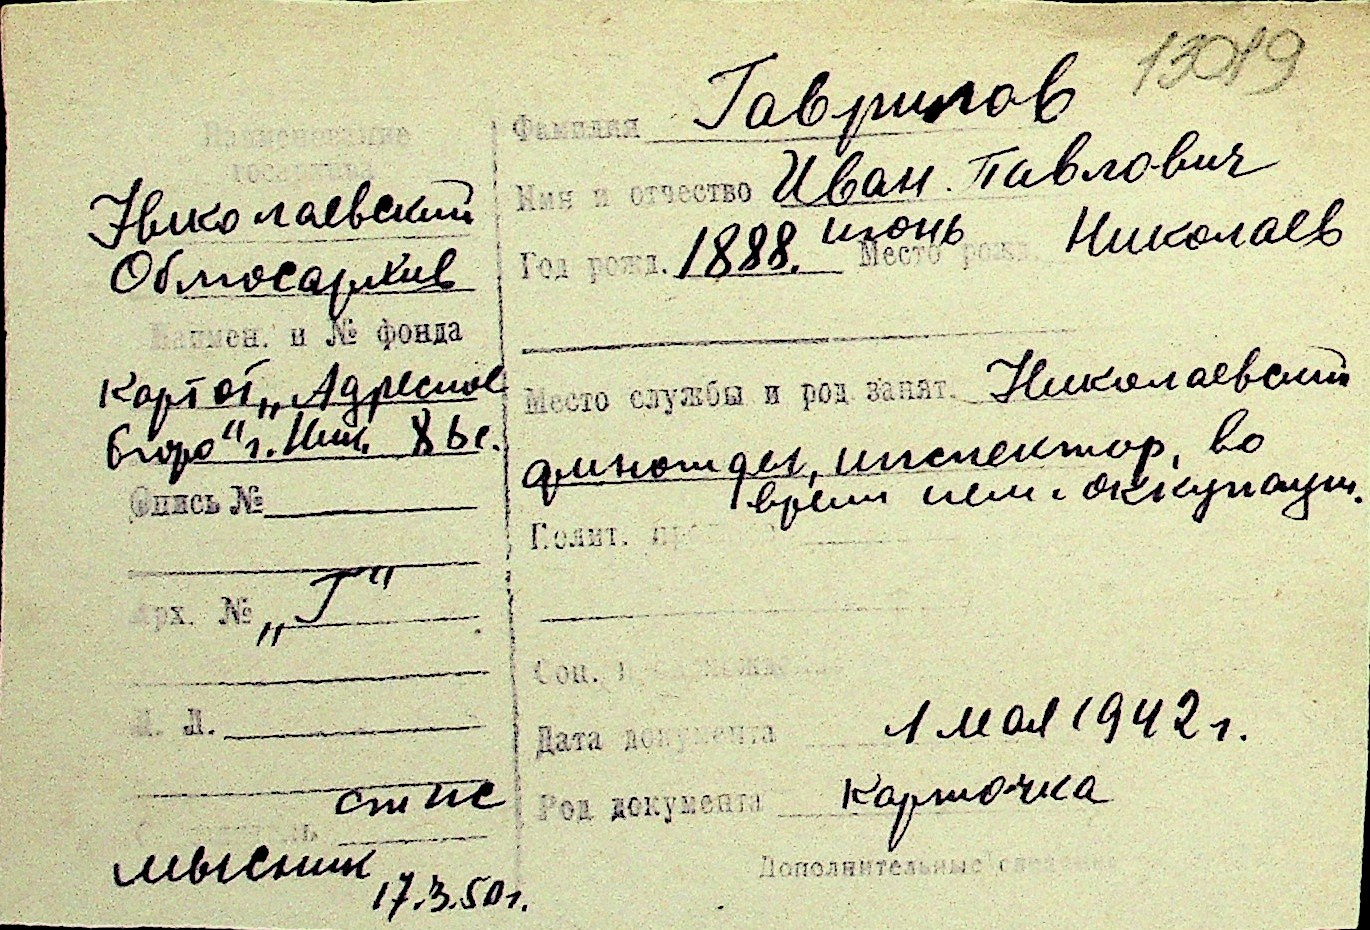 13019
Наименование
госархива
Николаевский
Облгосархив
Наимен. и № фонда
Картот. „Адресное
бюро" г. Ник.
Опись №
Арх. № „Г"
К. Л.
ст пс
мысник
17.3.50 г.
Фамилия Гаврилов
Имя и отчество Иван Павлович
Год рожд. 1888. июнь Место рожд. Николаев
Место службы и род занят. Николаевский
инспектор, во
время нем. оккупации.
Полит.
Соц.
Дата документа 1 мая 1942 г.
Род документа Карточка
Дополнительные сведения